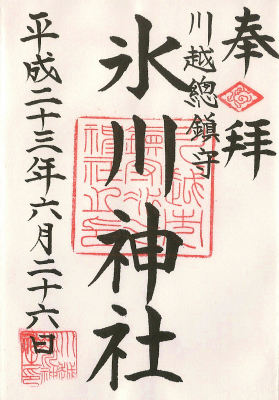 奉拝
川越總鎮守
氷川神社
平成二十三年六月二十六日